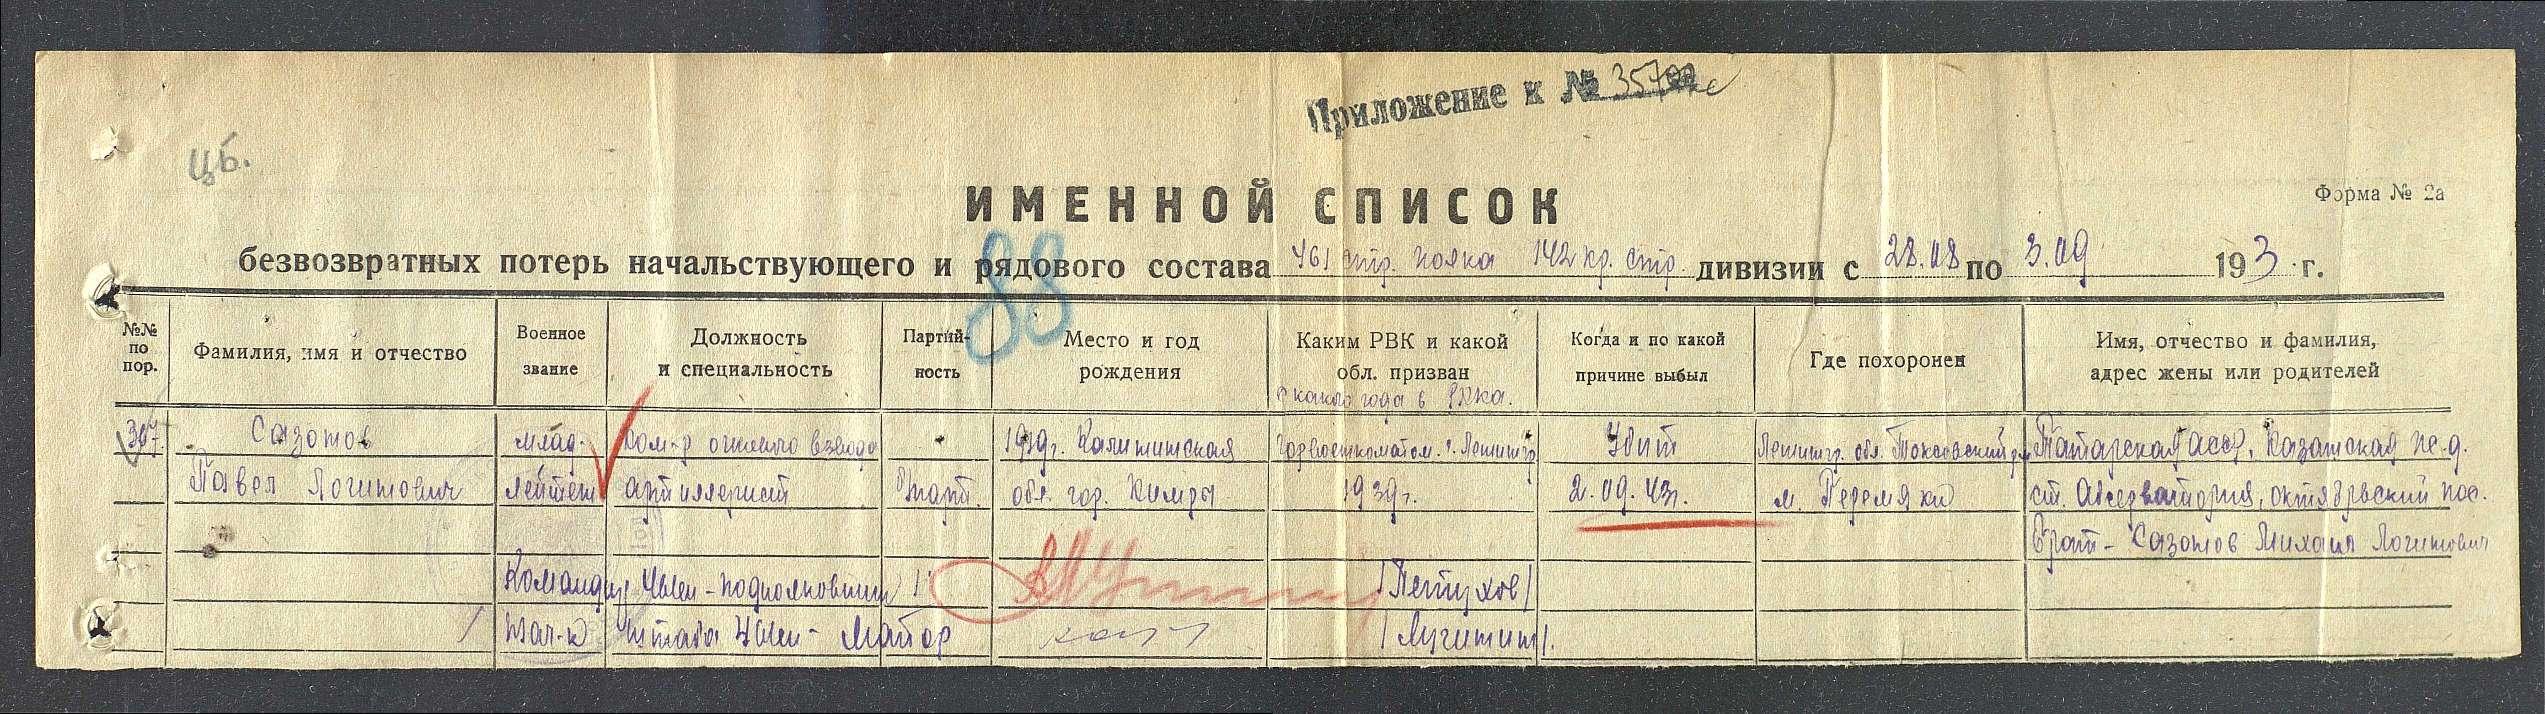 Приложение к № 357
ЦБ.
ИМЕННОЙ СПИСОК
Форма № 2а
безвозвратных потерь начальствующего и рядового состава 461 стр. полка 142 кр. стр. дивизии с 28.08 по 3.09 193 г.
88
№№ по пор.
Фамилия, имя и отчество
Военное звание
Должность и специальность
Партийность
Место и год рождения
Каким РВК и какой обл. призван
с какого года в РККА.
Когда и по какой причине выбыл
Где похоронен
Имя, отчество и фамилия, адрес жены или родителей
307.
Сазонов
Павел Логинович
млад.
лейтен
ком-р огневого взвода
артиллерист
б/парт.
1919г. Калининская
обл. гор. Кимры
Горвоенкоматом г. Ленингр
1939г.
Убит
2.09.43г.
Ленингр. обл. Токсовский р-н
м. Перемяки
Татарская АССР, Казанская ж.д.
ст. Обсерватория, октябрьский пос.
Брат - Сазонов Михаил Логинович
Командир части - подполковник /Петухов/
Нач-к штаба части - Майор /Лугинин/.